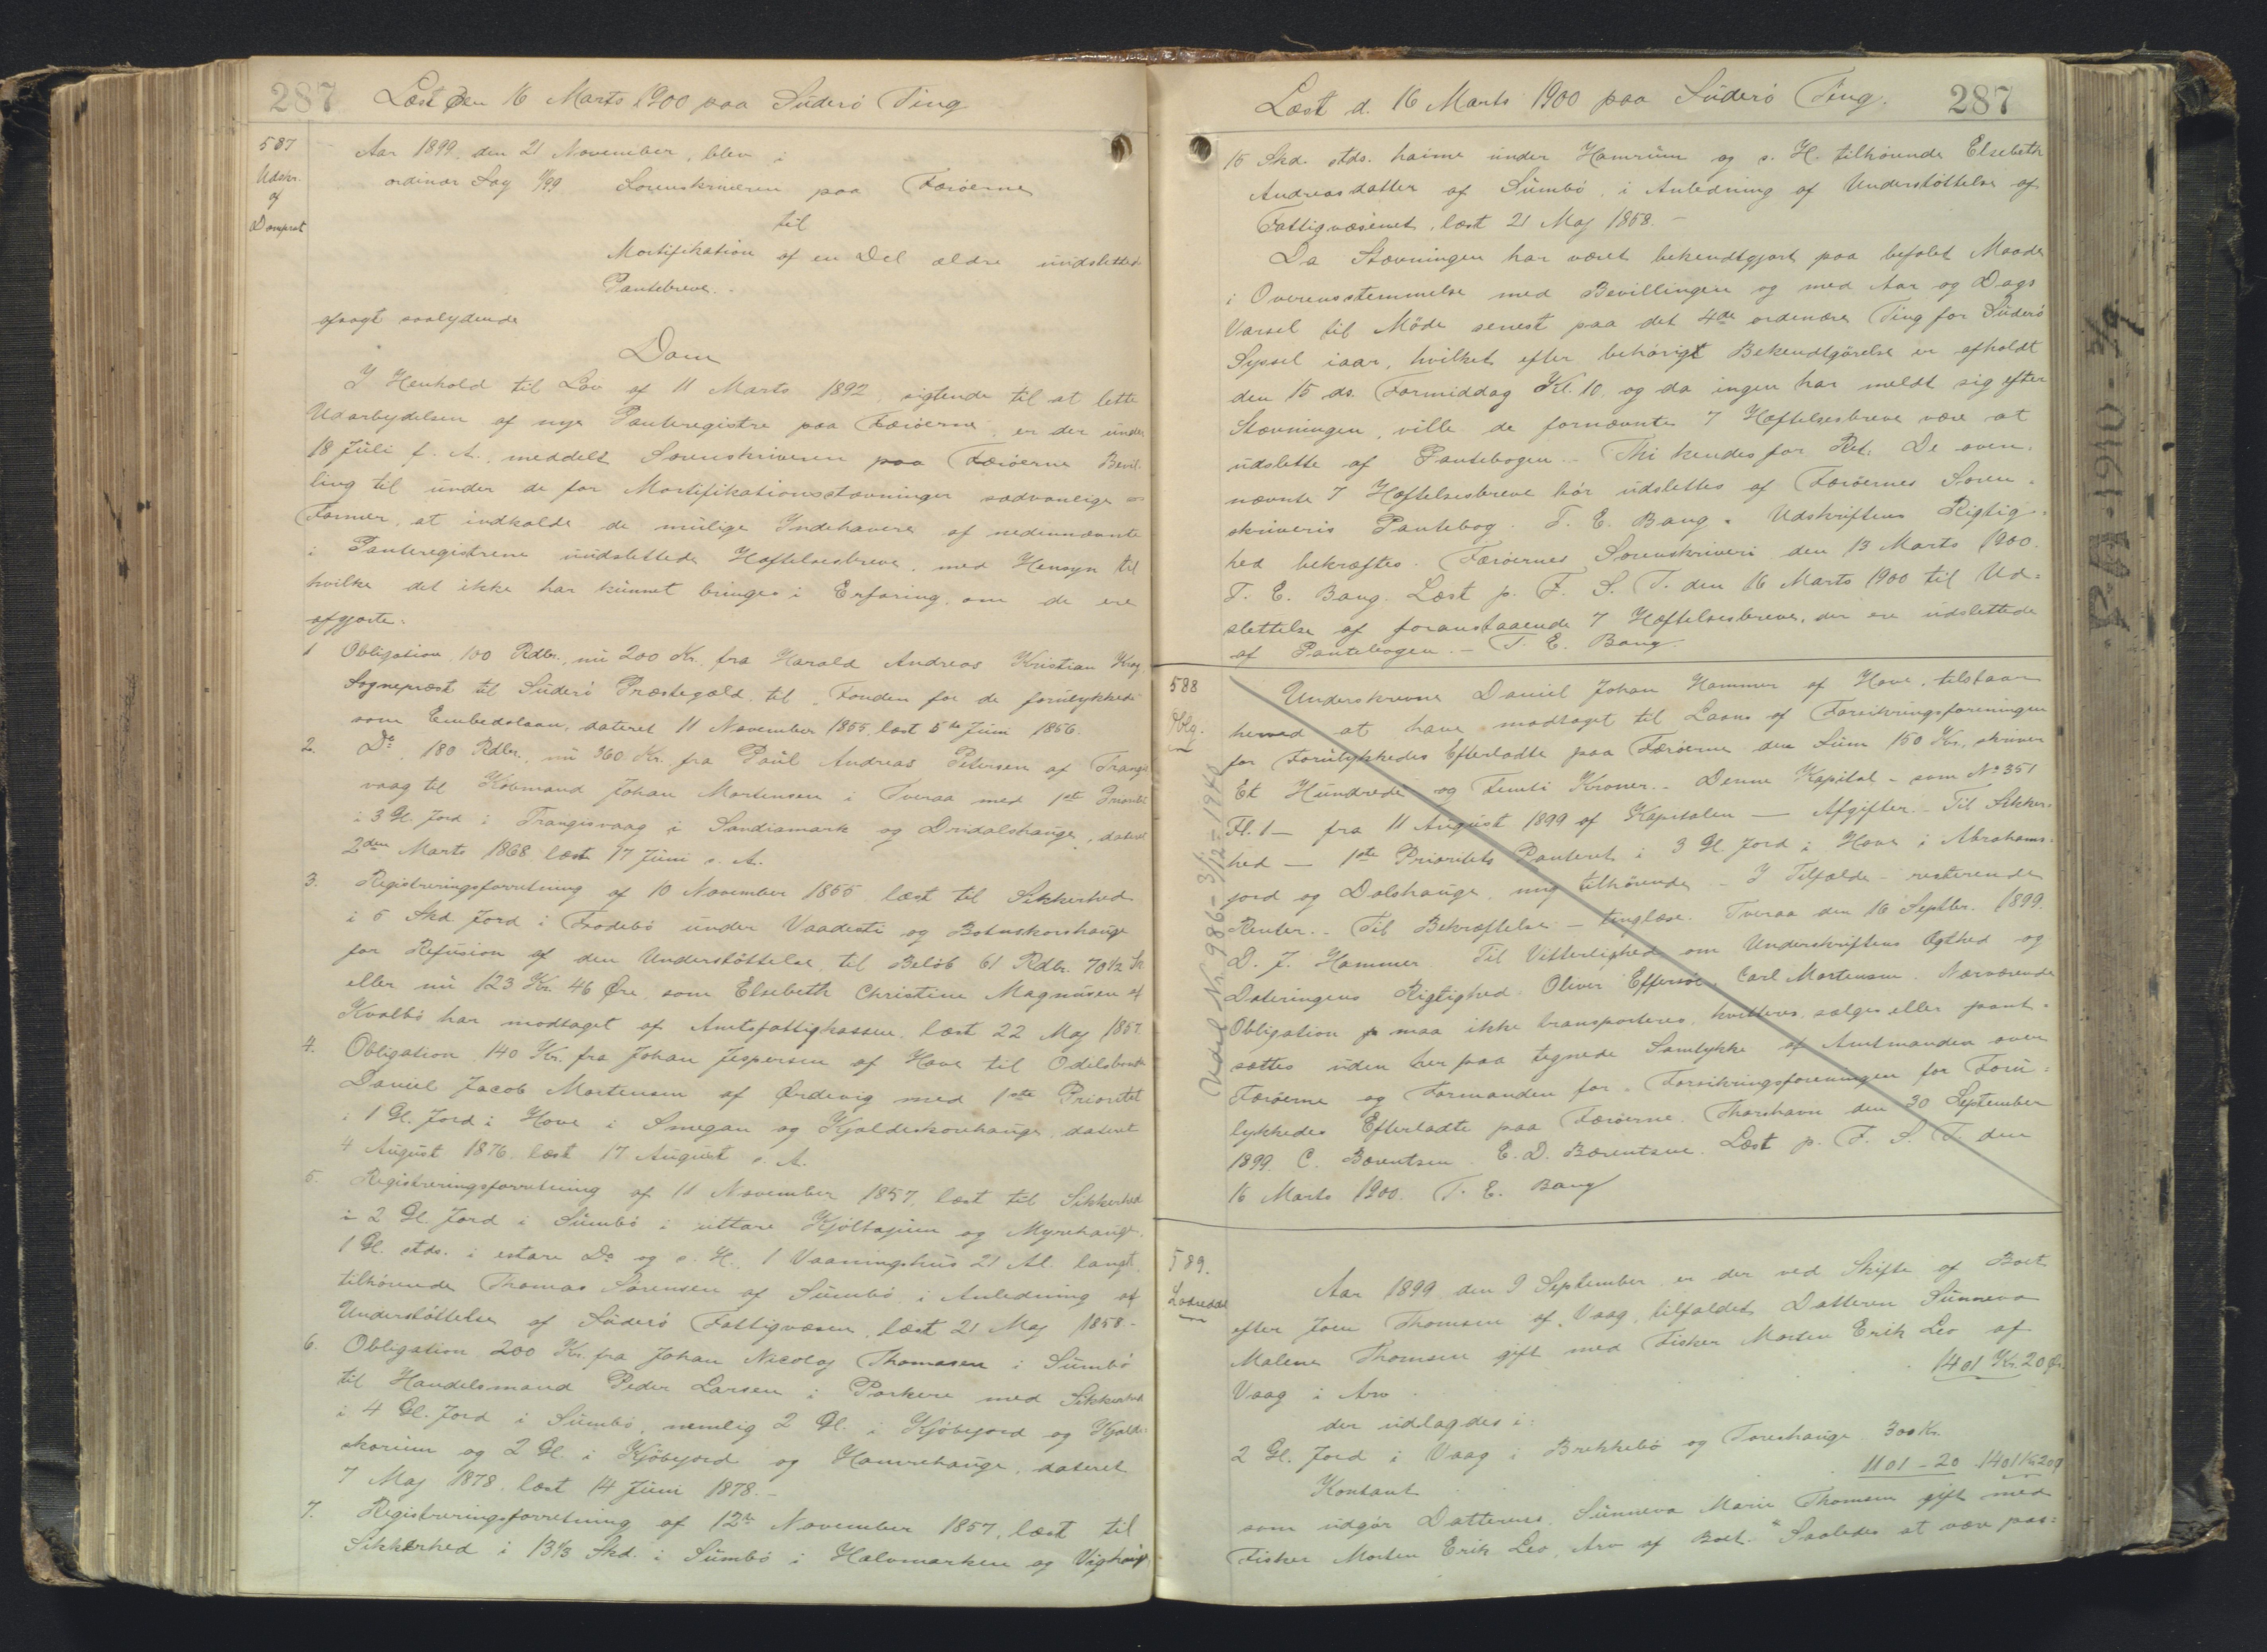 287 Læst den 16 Marts 1900 paa Süderö Ting
587
Udskr.
af
Domprot
Aar 1899, den 21 November, blev i
ordinær Sag 1/99 Sorenskriveren paa Færöerne
til
Mortifikation af en Del ældre uudslettede
Pantebreve.
afsagt saalydende
Dom
I Henhold til Lov af 11 Marts 1892, sigtende til at lette
Udarbejdelsen af nye Panteregistre paa Færöerne, er der under
18 Juli f. A. meddelt Sorenskriveren paa Færöerne Bevil-
ling til under de for Mortifikationsstævninger sædvanlige
Former, at indkalde de mulige Indehavere af nedennævnte
i Panteregistrene uudslettede Hæftelsesbreve, med Hensyn til
hvilke det ikke har kunnet bringes i Erfaring, om de ere
afgjorte.
1 Obligation, 100 Rdlr., nu 200 Kr. fra Harald Andreas Kristian Krog,
Sognepræst til Süderö Præstegæld til Fonden for de forulykkede
som Embedslaan, dateret 11 November 1855, læst 5te Juni 1856.
2. Do, 180 Rdlr., nu 360 Kr. fra Paul Andreas Petersen af Trangis
vaag til Kobmand Johan Mortensen i Tveraa med 1ste Prioritet
i 3 Gl. Jord i Trangisvaag i Sandiamark og Dridalshauge, dateret
2den Marts 1868 læst 17 Juni s. A.
3. Registreringsforretning af 10 November 1855 læst til Sikkerhed
i 5 Skd Jord i Frodebö under Vaadesti og Botnskorshauge
for Refusion af den Understöttelse til Belöb 61 Rdlr. 70 1/2 Sk
eller nu 123 Kr. 46 Øre, som Elsebeth Christine Magnusen af
Kvalbö har modtaget af Amtsfattigkassen. læst 22 Maj 1857.
4. Obligation 140 Kr. fra Johan Jespersen af Hove til Odelsbonde
Daniel Jacob Mortensen af Ørdevig med 1ste Prioritet
i 1 Gl. Jord i Hove i Smegan og Kjaldeskorehauge, dateret
4 August 1876. læst 17 August s. A.
5. Registreringsforretning af 11 November 1857, læst til Sikkerhed
i 2 Gl. Jord i Sümbö i uttare Kjöltajum og Myrehauge,
1 Gl. stds. i estare Do og s. H. 1 Vaaningshus 21 Al. langt,
tilhörende Thomas Sörensen af Sümbö i Anledning af
Understöttelse af Süderö Fattigvæsen, læst 21 Maj 1858.-
6. Obligation 200 Kr. fra Johan Nicolaj Thomasen i Sümbö
til Handelsmand Peder Larsen i Porkere med Sikkerhed
i 4 Gl. Jord i Sümbö, nemlig 2 Gl. i Kjöbejord og Kjalde-
skorum og 2 Gl. i Kjöbejord og Hamrehauge, dateret
7 Maj 1878. læst 14 Juni 1878.-
7. Registreringsforretning af 12te November 1857, læst til
Sikkerhed i 13 1/3 Skd. i Sümbö i Halvmarken og Vighauge
Læst d. 16 Marts 1900 paa Süderö Ting. 287
15 Skd. stds. haime under Hamrum og s. H. tilhörende Elsebeth
Andreasdatter af Sümbö, i Anledning af Understöttelse af
Fattigvæsenet, læst 21 Maj 1858.-
Da Stævningen har været bekendtgjort paa befalet Maade
i Overensstemmelse med Bevillingen og med Aar og Dags
Varsel til Möde senest paa det 4de ordinære Ting for Süderö
Syssel iaar, hvilket efter behörigt Bekendtgörelse er afholdt
den 15 ds. Formiddag Kl. 10, og da ingen har meldt sig efter
Stævningen, ville de fornævnte 7 Hæftelsesbreve være at
udslette af Pantebogen.- Thi kendes for Ret: De oven-
nævnte 7 Hæftelsesbreve bör udslettes af Færöernes Soren-
skriveris Pantebog. T. E. Bang. Udskriftens Rigtig-
hed bekræftes. Færöernes Sorenskriveri den 13 Marts 1900.
T. E. Bang. Læst p. F. S. T. den 16 Marts 1900 til Ud-
slettelse af foranstaaende 7 Hæftelsesbreve, der ere udslettede
af Pantebogen.- T. E. Bang.
588
Oblg.
Underskrevne Daniel Johan Hammer af Hove, tilstaar
herved at have modtaget til Laans af Forsikringsforeningen
for Forulykkedes Efterladte paa Færöerne den Sum 150 Kr., skriver
Et Hundrede og Femti Kroner.- Denne Kapital - som No 351
Fl. 1 - fra 11 August 1899 af Kapitalen - Afgifter.- Til Sikker-
hed - 1ste Prioritets Panteret i 3 Gl. Jord i Hove i Abrahams-
jord og Dalshauge, mig tilhörende - I Tilfælde - resterende
Renter.- Til Bekræftelse - tinglæse. Tveraa den 16 Septbr. 1899.
D. J. Hammer. Til Vitterlighed om Underskriftens Ægthed og
Dateringens Rigtighed. Oliver Effersöe, Carl Mortensen. Nærværende
Obligation maa ikke transporteres, kvitteres, sælges eller pant-
sættes uden her paa tegnede Samtykke af Amtmanden over
Færöerne og Formanden for Forsikringsforeningen for Foru-
lykkedes Efterladte paa Færöerne. Thorshavn den 30 September
1899. C. Bærentsen. E. D. Bærentsen. Læst p. F. S. T. den
16 Marts 1900. T. E. Bang
Udsl. Nr. 986 - 3/12 - 1940
589.
Aar 1899 den 9 September er der ved Skifte af Boet
efter Joen Thomsen af Vaag, tilfaldet Datteren Sunneva
Malene Thomsen gift med Fisker Morten Erik Leo af
Vaag i Arv . . . 1401 Kr. 20 Ør.
der udlagdes i:
2 Gl. Jord i Vaag i Brekkebö og Toreshauge 300 Kr.
Kontant . . 1101 - 20 1401 Kr 20 Ø
som udgör Datterens, Sunneva Marie Thomsen gift med
Fisker Morten Erik Leo, Arv af Boet." Saaledes at være pas-